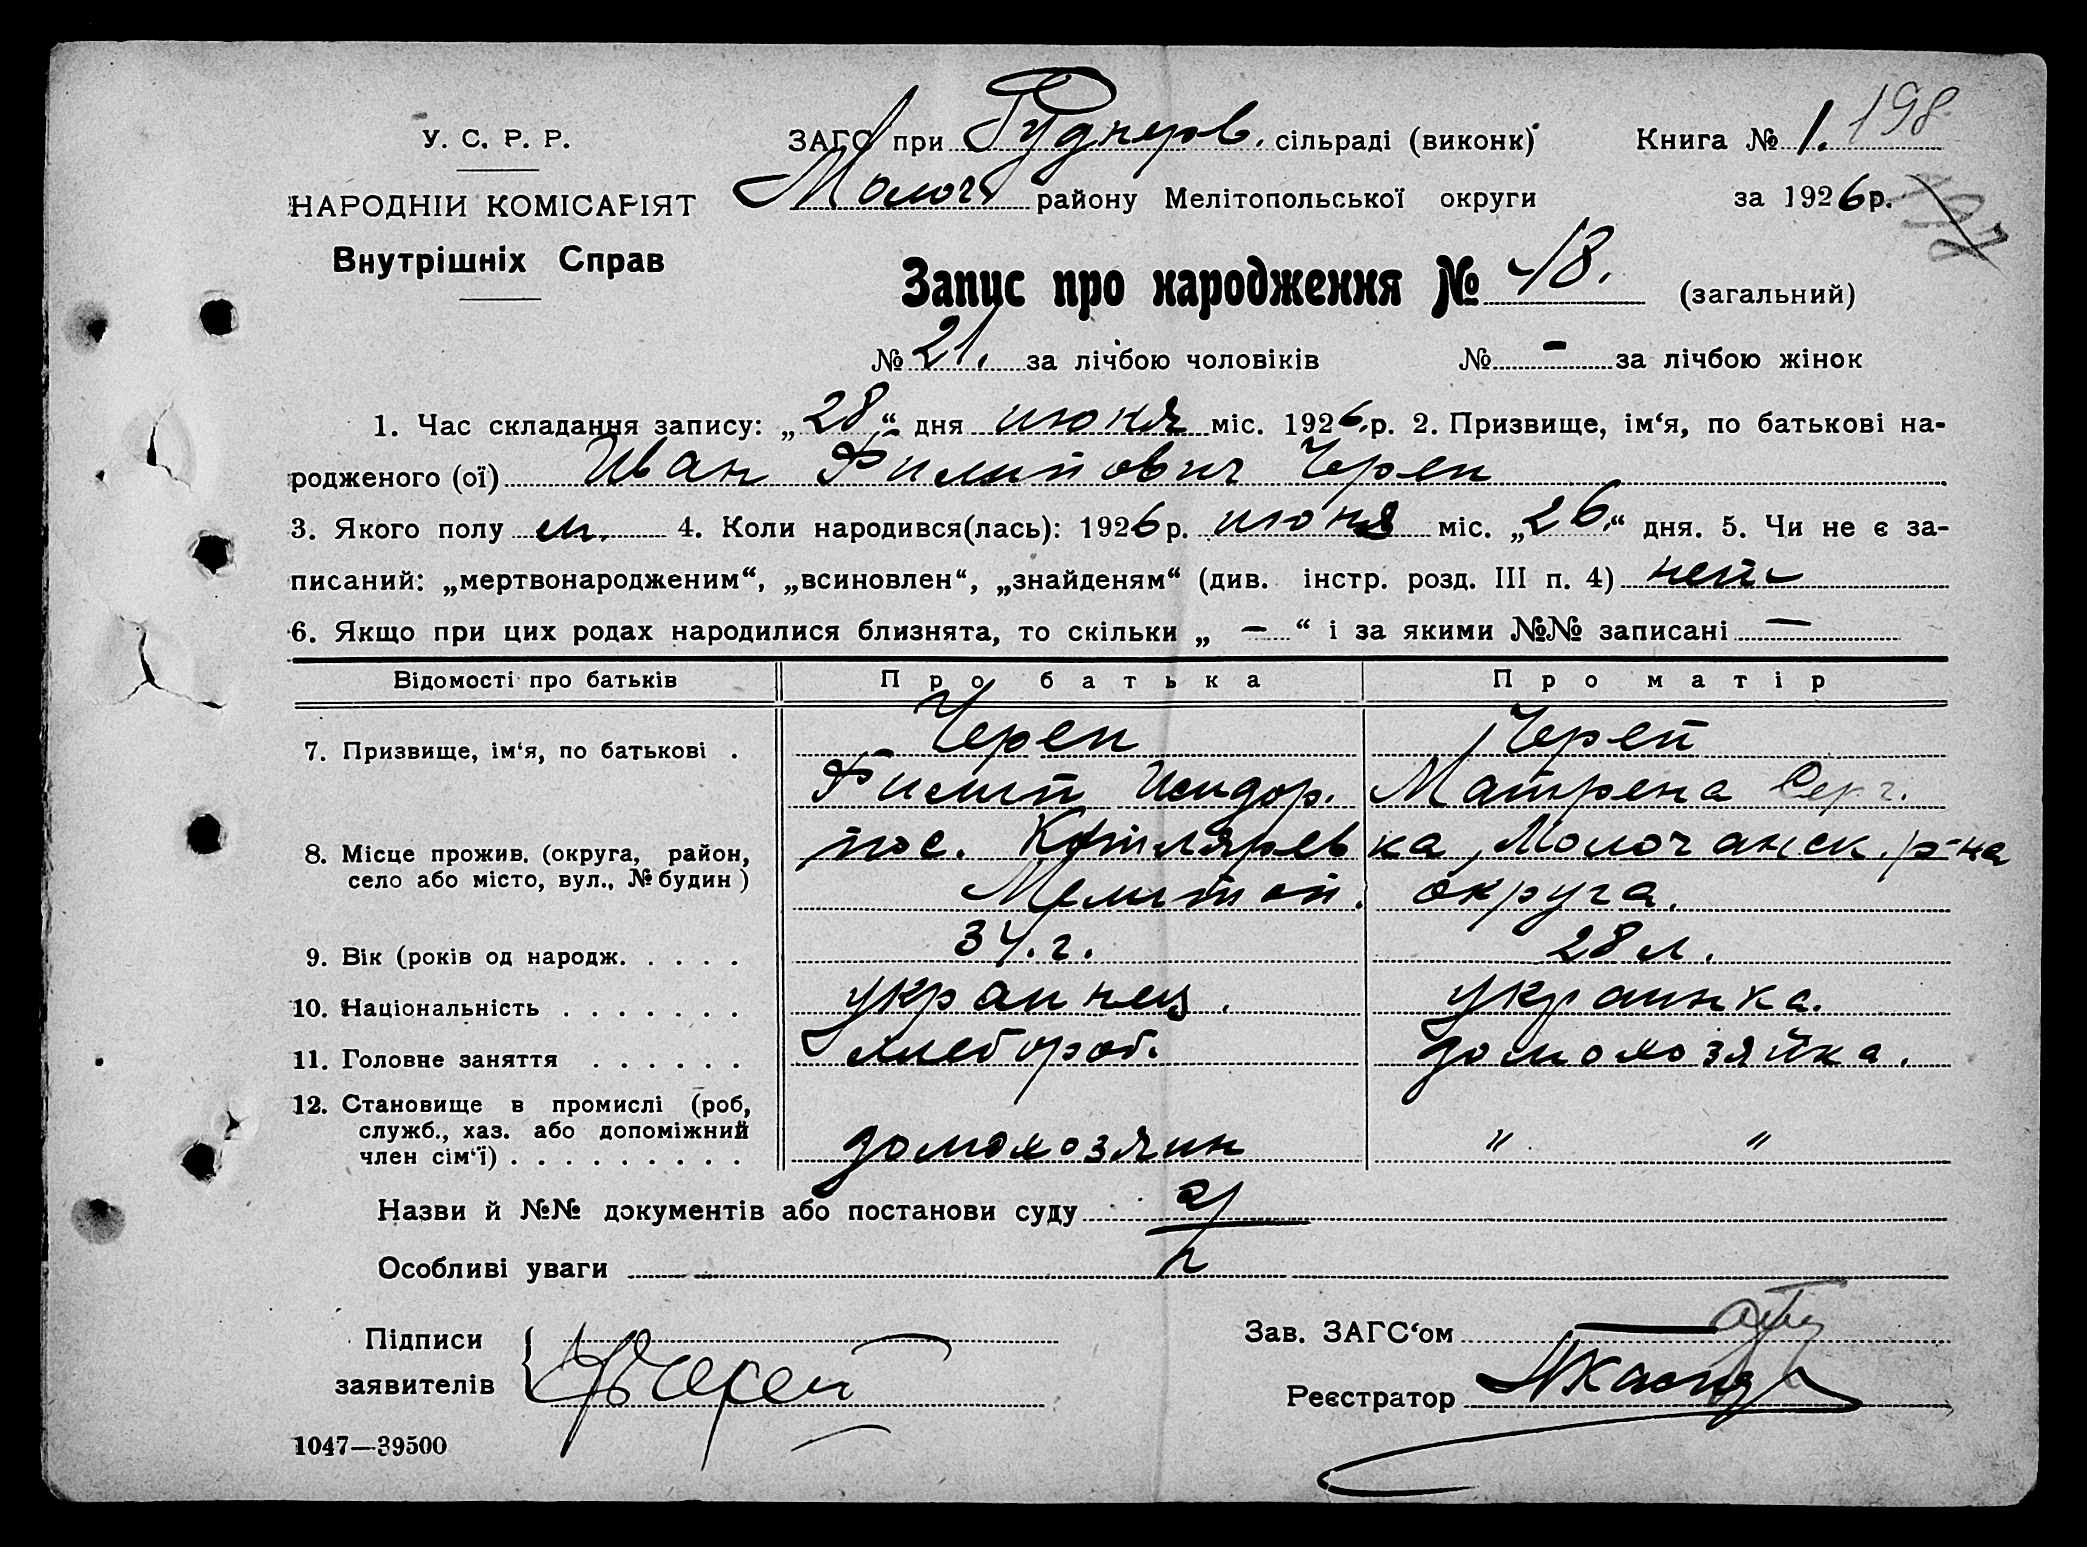 198
У. С. Р. Р.
ЗАГС при Гуднеров. сільраді (виконк) Книга № 1.
НАРОДНІЙ КОМІСАРІЯТ Молоч. району Мелітопольської округи за 1926 р.
Внутрішніх Справ
Запис про народження № 48. (загальний)
№ 21. за лічбою чоловіків № — за лічбою жінок
1. Час складання запису: „28“ дня июня міс. 1926 р. 2. Призвище, ім‘я, по батькові на-
родженого (ої) Иван Филипович Череп
3. Якого полу м. 4. Коли народився(лась): 1926 р. июня міс. „26.“ дня. 5. Чи не є за-
писаний: „мертвонародженим“, „всиновлен“, „знайденям“ (див. інстр. розд. III п. 4) нет
6. Якщо при цих родах народилися близнята, то скільки „ — “ і за якими №№ записані —
Відомості про батьків Про батька Про матір
7. Призвище, ім‘я, по батькові . Череп Череп
Филип Исидор. Матрена Серг.
8. Місце прожив. (округа, район, пос. Котляревка, Молочанск. р-на
село або місто, вул., № будин) Мелитоп. округа.
9. Вік (років од народж. . . . . 34. г. 28 л.
10. Національність . . . . . . . украинец. украинка.
11. Головне заняття . . . . . . хлебороб. домохозяйка.
12. Становище в промислі (роб,
служб., хаз. або допоміжний
член сім‘ї) . . . . . . . . . домохозяин " "
Назви й №№ документів або постанови суду
Особливі уваги
Підписи Зав. ЗАГС‘ом
заявителів Череп Реєстратор
1047—39500